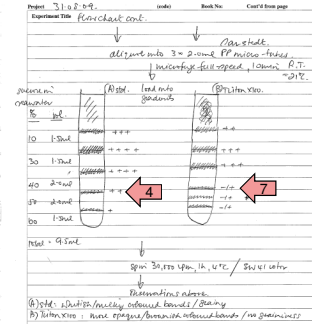 Project 31.08.09. (code) Book No: Cont'd from page
Experiment Title Flowchart cont.
Sarstedt.
aliquot into 3 x 2.0ml PP micro-tubes
microfuge full-speed, 10min R.T.
~21°C.
sucrose (A) std. load into (B) Triton X100.
gradients
% vol.
10 1.5ml +++ ++
++++ +++
30 1.5ml ++++ +++
40 2.0ml ++ 4 -/+ 7
50 2.0ml -/+
60 1.5ml + -/+
total = 9.5ml
spin 30,000 rpm, 1h, 4°C / SW41 rotor
Observations above
(A) std: whitish/milky coloured bands / grainy
(B) Triton X100: more opaque/brownish coloured bands / no graininess